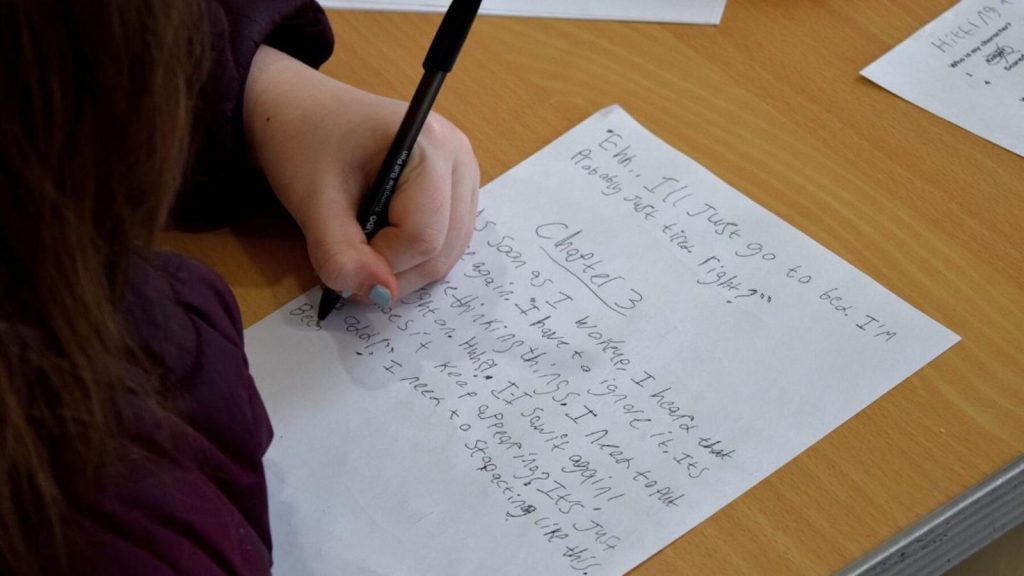 "Ehh.. I'll Just go to bed. I'm
Probably Just tired right?"
Chapter 3
As soon as I wokeup, I heard that
again. "I have to ignore it. Its
thinking things. I need to put
light on. Huh?. I-I saw it again!
does it keep appearing? Its Just
odd!" I need to stop acting like this.
Bec
Who is my character?